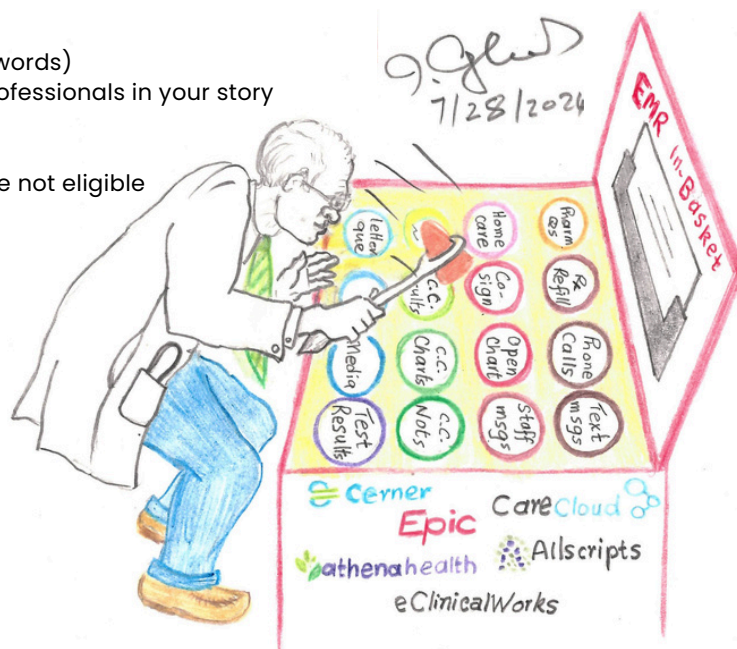 words)
ofessionals in your story
e not eligible
7/28/2024
EMR In-Basket
letter que
Home care
Pharm Qs
Co-sign
Rx Refill
Media
C.C. Charts
Open Chart
Phone Calls
Test Results
C.C. Nots
Staff msgs
Text msgs
Cerner
CareCloud
Epic
athenahealth
Allscripts
eClinicalWorks